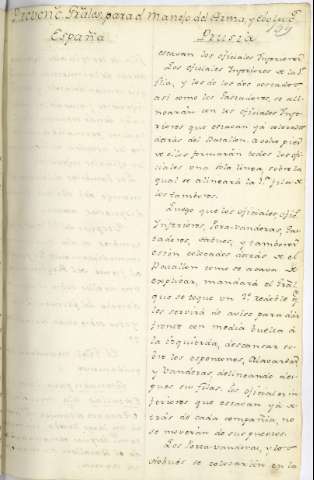 Prevenc.s Grãles. para el Manejo del Arma, y Evoluc.s
159
España
Prusia
estavan los oficiales Inferiores
Los oficiales Inferiores de la
fila, y los de los dos costados
asi como los Gastadores, se ali-
nearán con los oficiales Infe-
riores que estavan ya colocados
detrás del Batallon. a ocho pies
de ellos formarán todos los ofi-
ciales una sola linea, sobre la
qual se alineará la 1.ª fila de
los tambores.
Luego que los oficiales, ofic.s
Inferiores, Porta-vanderas, Gas-
tadores, obues, y tambores
esten colocados detrás del
Batallon como se acava de
explicar, mandará el Grãl
que se toque un redoble q.e
les servirá de aviso para dar
frente con media buelta á
la izquierda, descansar so-
bre los espontones, Alavardas
y Vanderas alineando des-
pues sus filas. los oficiales in-
feriores que estavan ya de-
trás de cada compañia, no
se moverán de sus puestos.
Los Porta-vanderas, y los
obues se colocarán en la